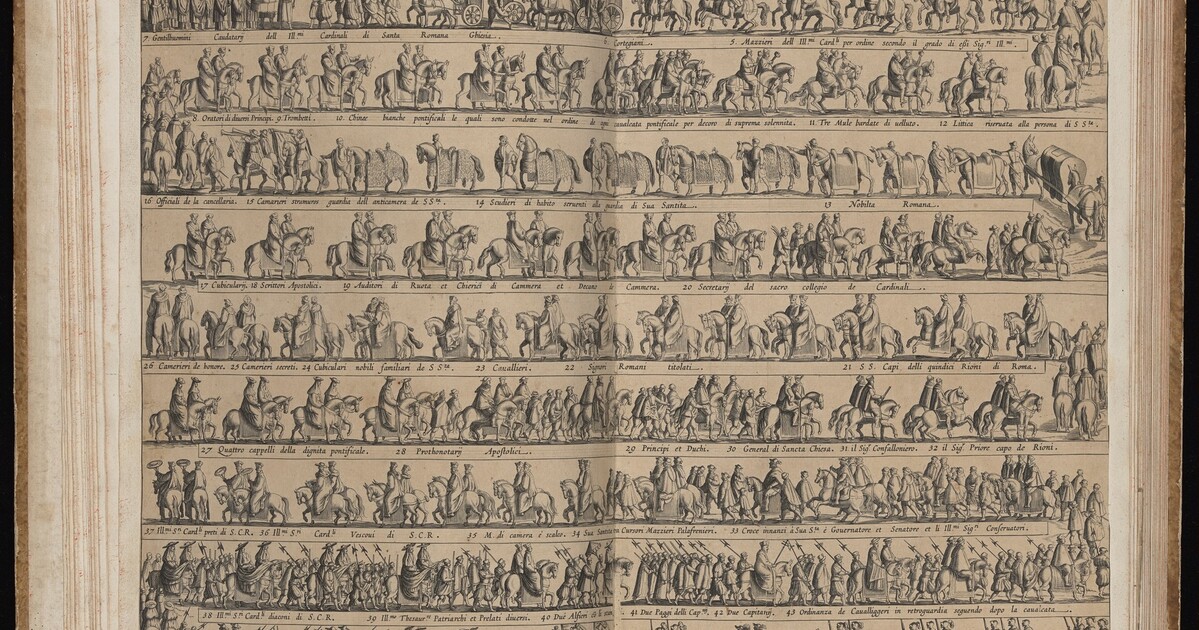 7 Gentilhuomini Caudatarij dell Ill.mi Cardinali di Santa Romana Ghiesia. 6. Cortegiani. 5. Mazzieri dell Ill.mi Card.li per ordine secondo il grado di essi Sig.ri Ill.mi.
8. Oratori di diuersi Principi. 9 Trombetti. 10. Chinee bianche pontificali le quali sono condotte nel ordine de ogni caualcata pontificale per decoro di suprema solennita. 11 Tre Mule bardate di uelluto. 12 Littica riseruata alla persona di S S.ta.
16 Officiali de la cancellaria. 15 Camarieri stramures guardia dell anticamera de S S.ta. 14 Scudieri di habito seruenti alla guardia di Sua Santita. 13 Nobilta Romana.
17 Cubicularij. 18 Scrittori Apostolici. 19 Auditori di Ruota et Chierici di Cammera et Decano di Cammera. 20 Secretarij del sacro collegio de Cardinali.
26 Camerieri de honore. 25 Camerieri secreti. 24 Cubiculari nobili familiari de S S.ta. 23 Cavallieri. 22 Signori Romani titolati. 21 S S. Capi delli quindici Rioni di Roma.
27 Quattro cappelli della dignita pontificale. 28 Prothonotarij Apostolici. 29 Principi et Duchi. 30 General di Sancta Chiesa. 31 il Sig.r Confalloniero. 32 il Sig.r Priore capo de Rioni.
37 Ill.mi S.ri Card.li preti di S.C.R. 36 Ill.mi S.ri Card.li Vescoui di S.C.R. 35 M. di camera é scalco. 34 Sua Santita con Cursori Mazzieri Palafrenieri. 33 Croce innanti à Sua S.ta é Gouernatore et Senatore et li Ill.mi Sig.ri Conseruatori.
38 Ill.mi S.ri Card.li diaconi di S.C.R. 39 Ill.mo Thesaur.o Patriarchi et Prelati diuersi. 40 Due Alfieri 41 Due Paggi delli Cap.ni. 42 Due Capitanij. 43 Ordinanza de Cauallιggeri in retroguardia seguendo dopo la caualcata.